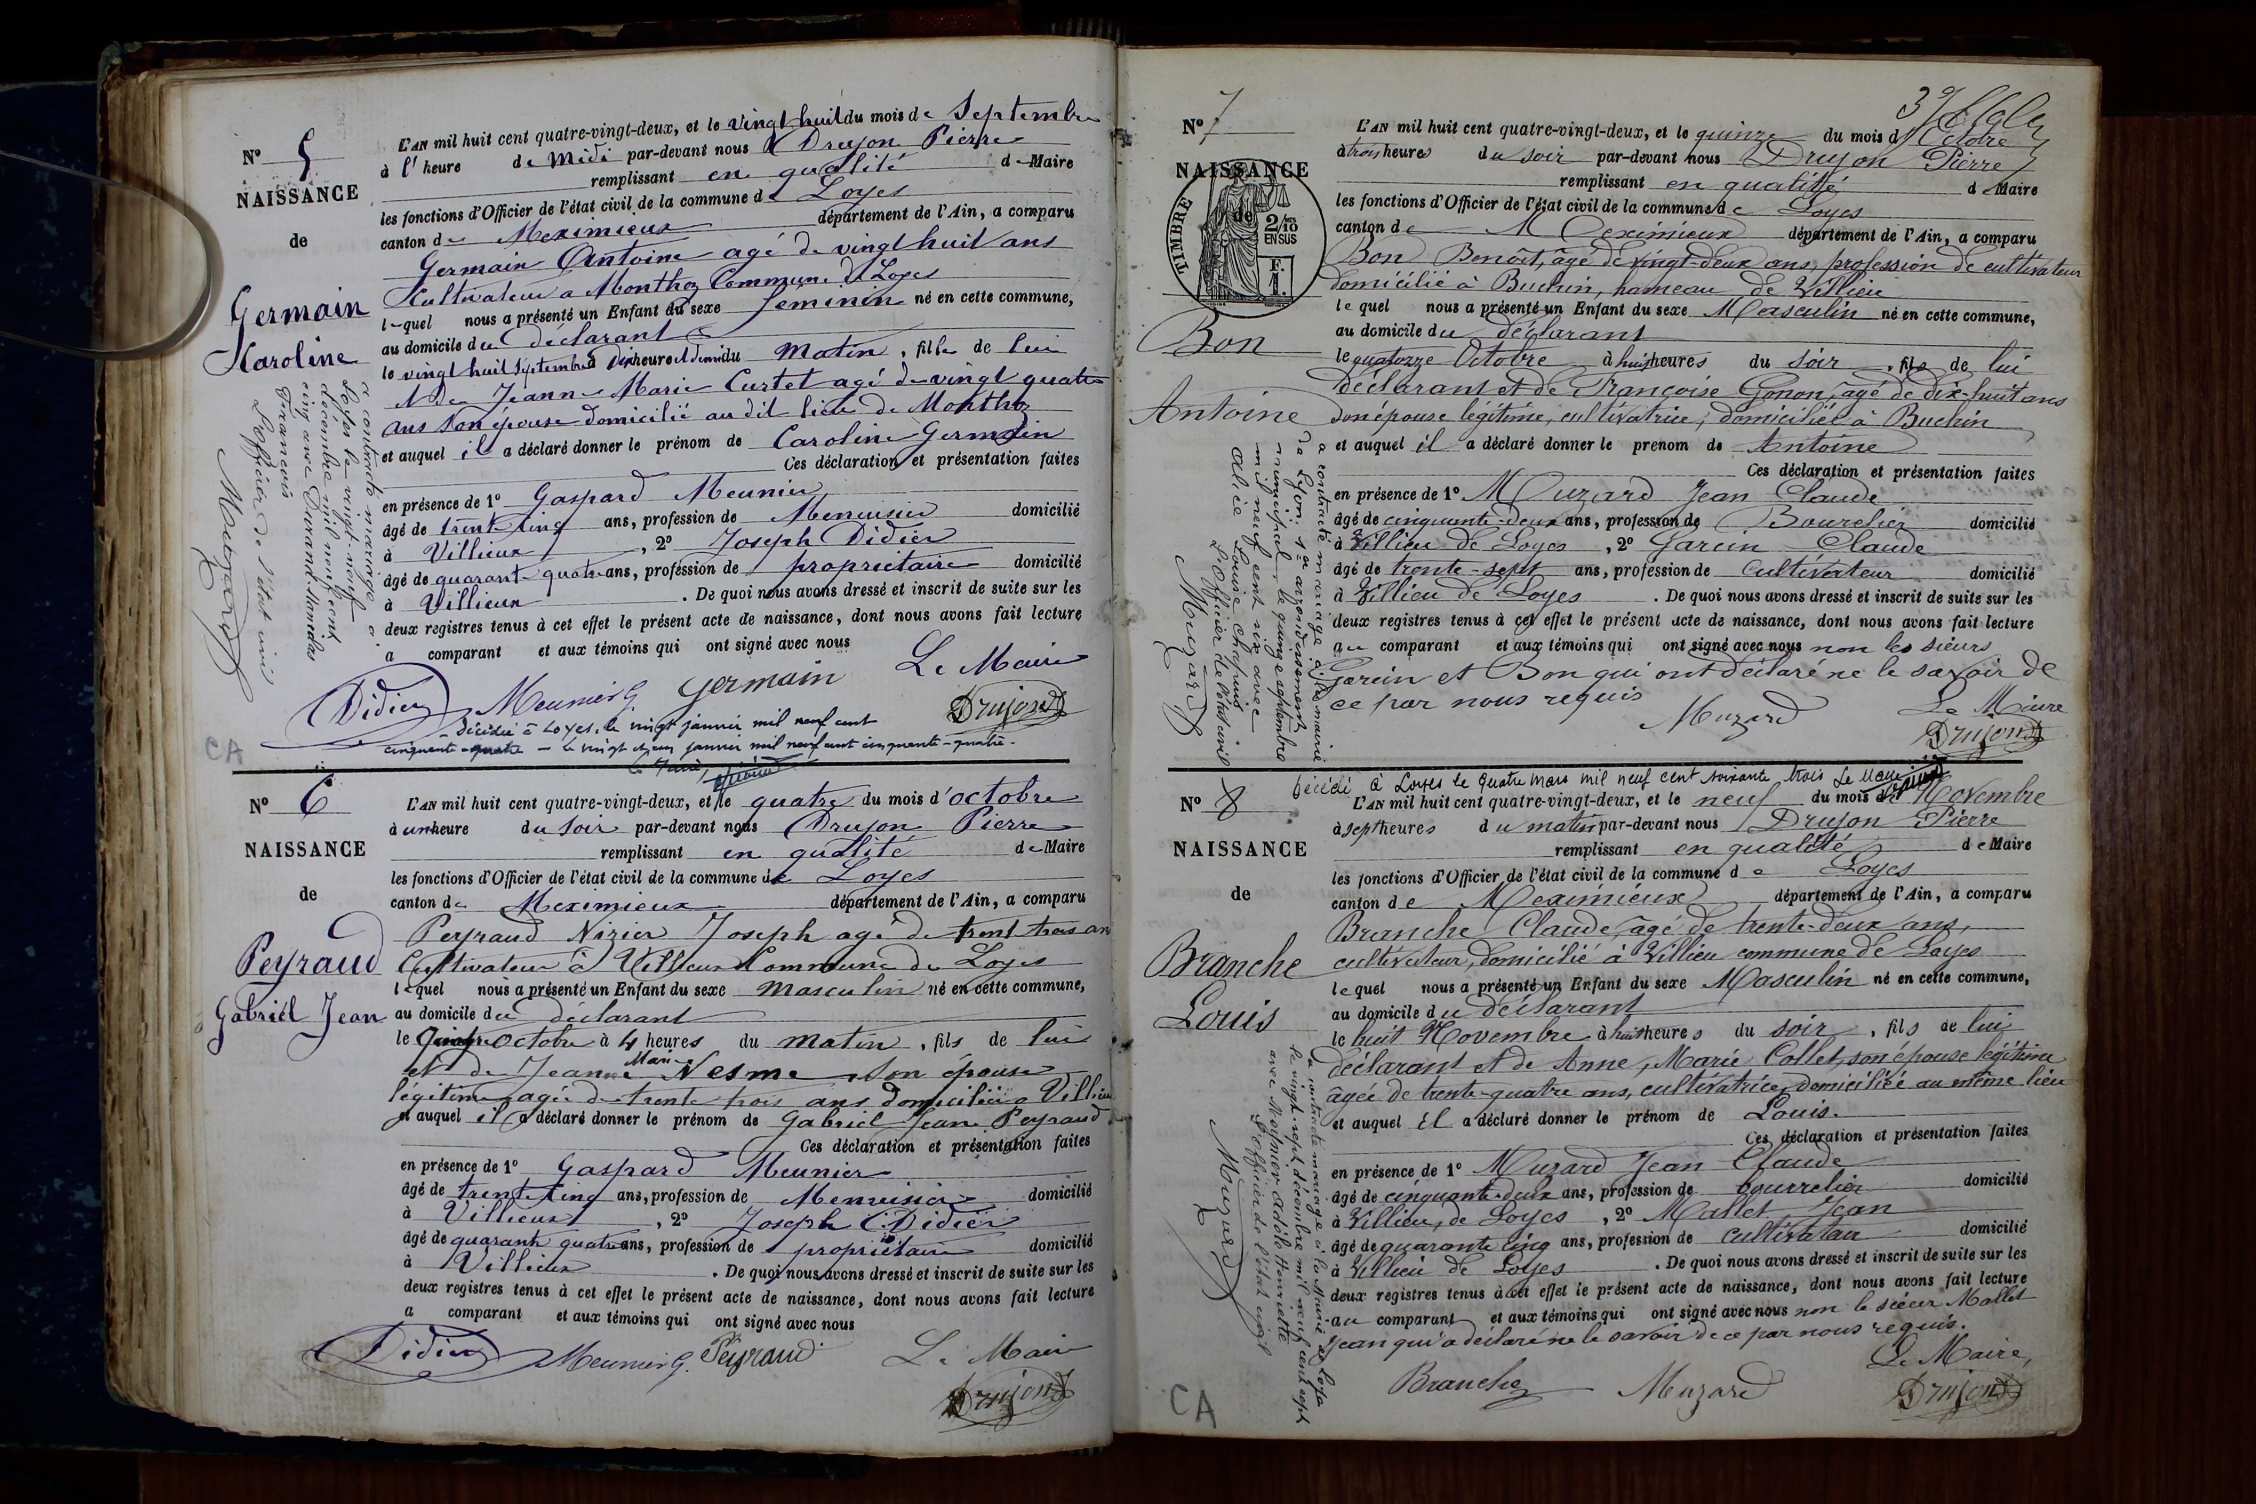 N° 5
NAISSANCE
de
Germain
Karoline
L'AN mil huit cent quatre-vingt-deux, et le vingt huit du mois de Septembre
à l' heure de Midi par-devant nous Drujon Pierre
remplissant en qualité de Maire
les fonctions d'Officier de l'état civil de la commune de Loyes
canton de Meximieux département de l'Ain, a comparu
Germain Antoine agé de vingt huit ans
Cultivateur a Monthoz Commune de Loyes
lequel nous a présenté un Enfant du sexe feminin né en cette commune,
au domicile du déclarant
le vingt huit Septembre à dix heure et demi du Matin, fille de lui
et de Jeanne Marie Curtet agé de vingt quatre
ans Son épouse domicilié au dit lieu de Monthoz
et auquel il a déclaré donner le prénom de Caroline Germain
Ces déclaration et présentation faites
en présence de 1° Gaspard Meunier
âgé de trente cinq ans, profession de Menuisier domicilié
à Villieux, 2° Joseph Didier
âgé de quarante quatre ans, profession de propriétaire domicilié
à Villieux. De quoi nous avons dressé et inscrit de suite sur les
deux registres tenus à cet effet le présent acte de naissance, dont nous avons fait lecture
a comparant et aux témoins qui ont signé avec nous
Le Maire
Didier Meunier G. Germain Drujon
Décédée à Loyes, le vingt janvier mil neuf cent
cinquante-quatre — le vingt et un janvier mil neuf cent cinquante-quatre.
Le Maire,
a contracté mariage à
Loyes le vingt-neuf
décembre mil neuf cent
cinq avec Durand Stanislas
François
L'officier de l'état civil
Muzard
CA
N° 6
NAISSANCE
de
Peyraud
Gabriel Jean
L'AN mil huit cent quatre-vingt-deux, et le quatre du mois d'octobre
à un heure du Soir par-devant nous Drujon Pierre
remplissant en qualité de Maire
les fonctions d'Officier de l'état civil de la commune de Loyes
canton de Meximieux département de l'Ain, a comparu
Peyraud Nizier Joseph agé de trent trois an
Cultivateur à Villieux Commune de Loyes
lequel nous a présenté un Enfant du sexe Masculin né en cette commune,
au domicile du déclarant
le quatre octobre à 4 heures du Matin, fils de lui
et de Jeanne Marie Nesme Son épouse
légitime agée de trente trois ans domiciliée a Villieu
et auquel il a déclaré donner le prénom de Gabriel Jean Peyraud
Ces déclaration et présentation faites
en présence de 1° Gaspard Meunier
âgé de trente cinq ans, profession de Menuisier domicilié
à Villieux, 2° Joseph Didier
âgé de quarante quatre ans, profession de propriétaire domicilié
à Villieux. De quoi nous avons dressé et inscrit de suite sur les
deux registres tenus à cet effet le présent acte de naissance, dont nous avons fait lecture
a comparant et aux témoins qui ont signé avec nous
Didier Meunier G. Peyraud Le Maire
Drujon
N° 7
NAISSANCE
de
TIMBRE
2/10
EN SUS
F.
1.
Bon
Antoine
L'AN mil huit cent quatre-vingt-deux, et le quinze du mois d'Octobre
à trois heures du soir par-devant nous Drujon Pierre
remplissant en qualité de Maire
les fonctions d'Officier de l'état civil de la commune de Loyes
canton de Meximieux département de l'Ain, a comparu
Bon Benoît, âgé de vingt-deux ans, profession de cultivateur
domicilié à Buchin, hameau de Villieu
lequel nous a présenté un Enfant du sexe Masculin né en cette commune,
au domicile du déclarant
le quatorze Octobre à huit heures du soir, fils de lui
déclarant et de Françoise Gonon, âgé de dix-huit ans
son épouse légitime, cultivatrice, domiciliée à Buchin
et auquel il a déclaré donner le prenom de Antoine
Ces déclaration et présentation faites
en présence de 1° Muzard Jean Claude
âgé de cinquante-deux ans, profession de Bourelier domicilié
à Villieu de Loyes, 2° Garcin Claude
âgé de trente-sept ans, profession de cultivateur domicilié
à Villieu de Loyes. De quoi nous avons dressé et inscrit de suite sur les
deux registres tenus à cet effet le présent acte de naissance, dont nous avons fait lecture
au comparant et aux témoins qui ont signé avec nous non les sieurs
Garcin et Bon qui ont déclaré ne le savoir de
ce par nous requis
Muzard Le Maire
Drujon
a contracté mariage à la mairie
de Lyon, 1er arrondissement
municipal, le quinze septembre
mil neuf cent six avec
Louise Charpuis
Alice
L'officier de l'état civil
Muzard
Décédé à Loyes le quatre mars mil neuf cent soixante trois Le Maire
N° 8
NAISSANCE
de
Branche
Louis
L'AN mil huit cent quatre-vingt-deux, et le neuf du mois de Novembre
à sept heures du matin par-devant nous Drujon Pierre
remplissant en qualité de Maire
les fonctions d'Officier de l'état civil de la commune de Loyes
canton de Meximieux département de l'Ain, a comparu
Branche Claude, âgé de trente-deux ans,
cultivateur, domicilié à Villieu commune de Loyes
lequel nous a présenté un Enfant du sexe Masculin né en cette commune,
au domicile du déclarant
le huit Novembre à huit heures du soir, fils de lui
déclarant et de Anne, Marie Collet, son épouse légitime
âgée de trente-quatre ans, cultivatrice, domiciliée au même lieu
et auquel il a déclaré donner le prénom de Louis.
Ces déclaration et présentation faites
en présence de 1° Muzard Jean Claude
âgé de cinquante-deux ans, profession de bourrelier domicilié
à Villieu, de Loyes, 2° Mallet Jean
âgé de quarante cinq ans, profession de cultivateur domicilié
à Villieu de Loyes. De quoi nous avons dressé et inscrit de suite sur les
deux registres tenus à cet effet le présent acte de naissance, dont nous avons fait lecture
au comparant et aux témoins qui ont signé avec nous non le sieur Mallet
Jean qui a déclaré ne le savoir de ce par nous requis.
Le Maire,
Branche Muzard Drujon
a contracté mariage à la Mairie de Loyes
le vingt-sept décembre mil neuf cent sept
avec Moynier Adèle Henriette
L'officier de l'état civil
Muzard
CA